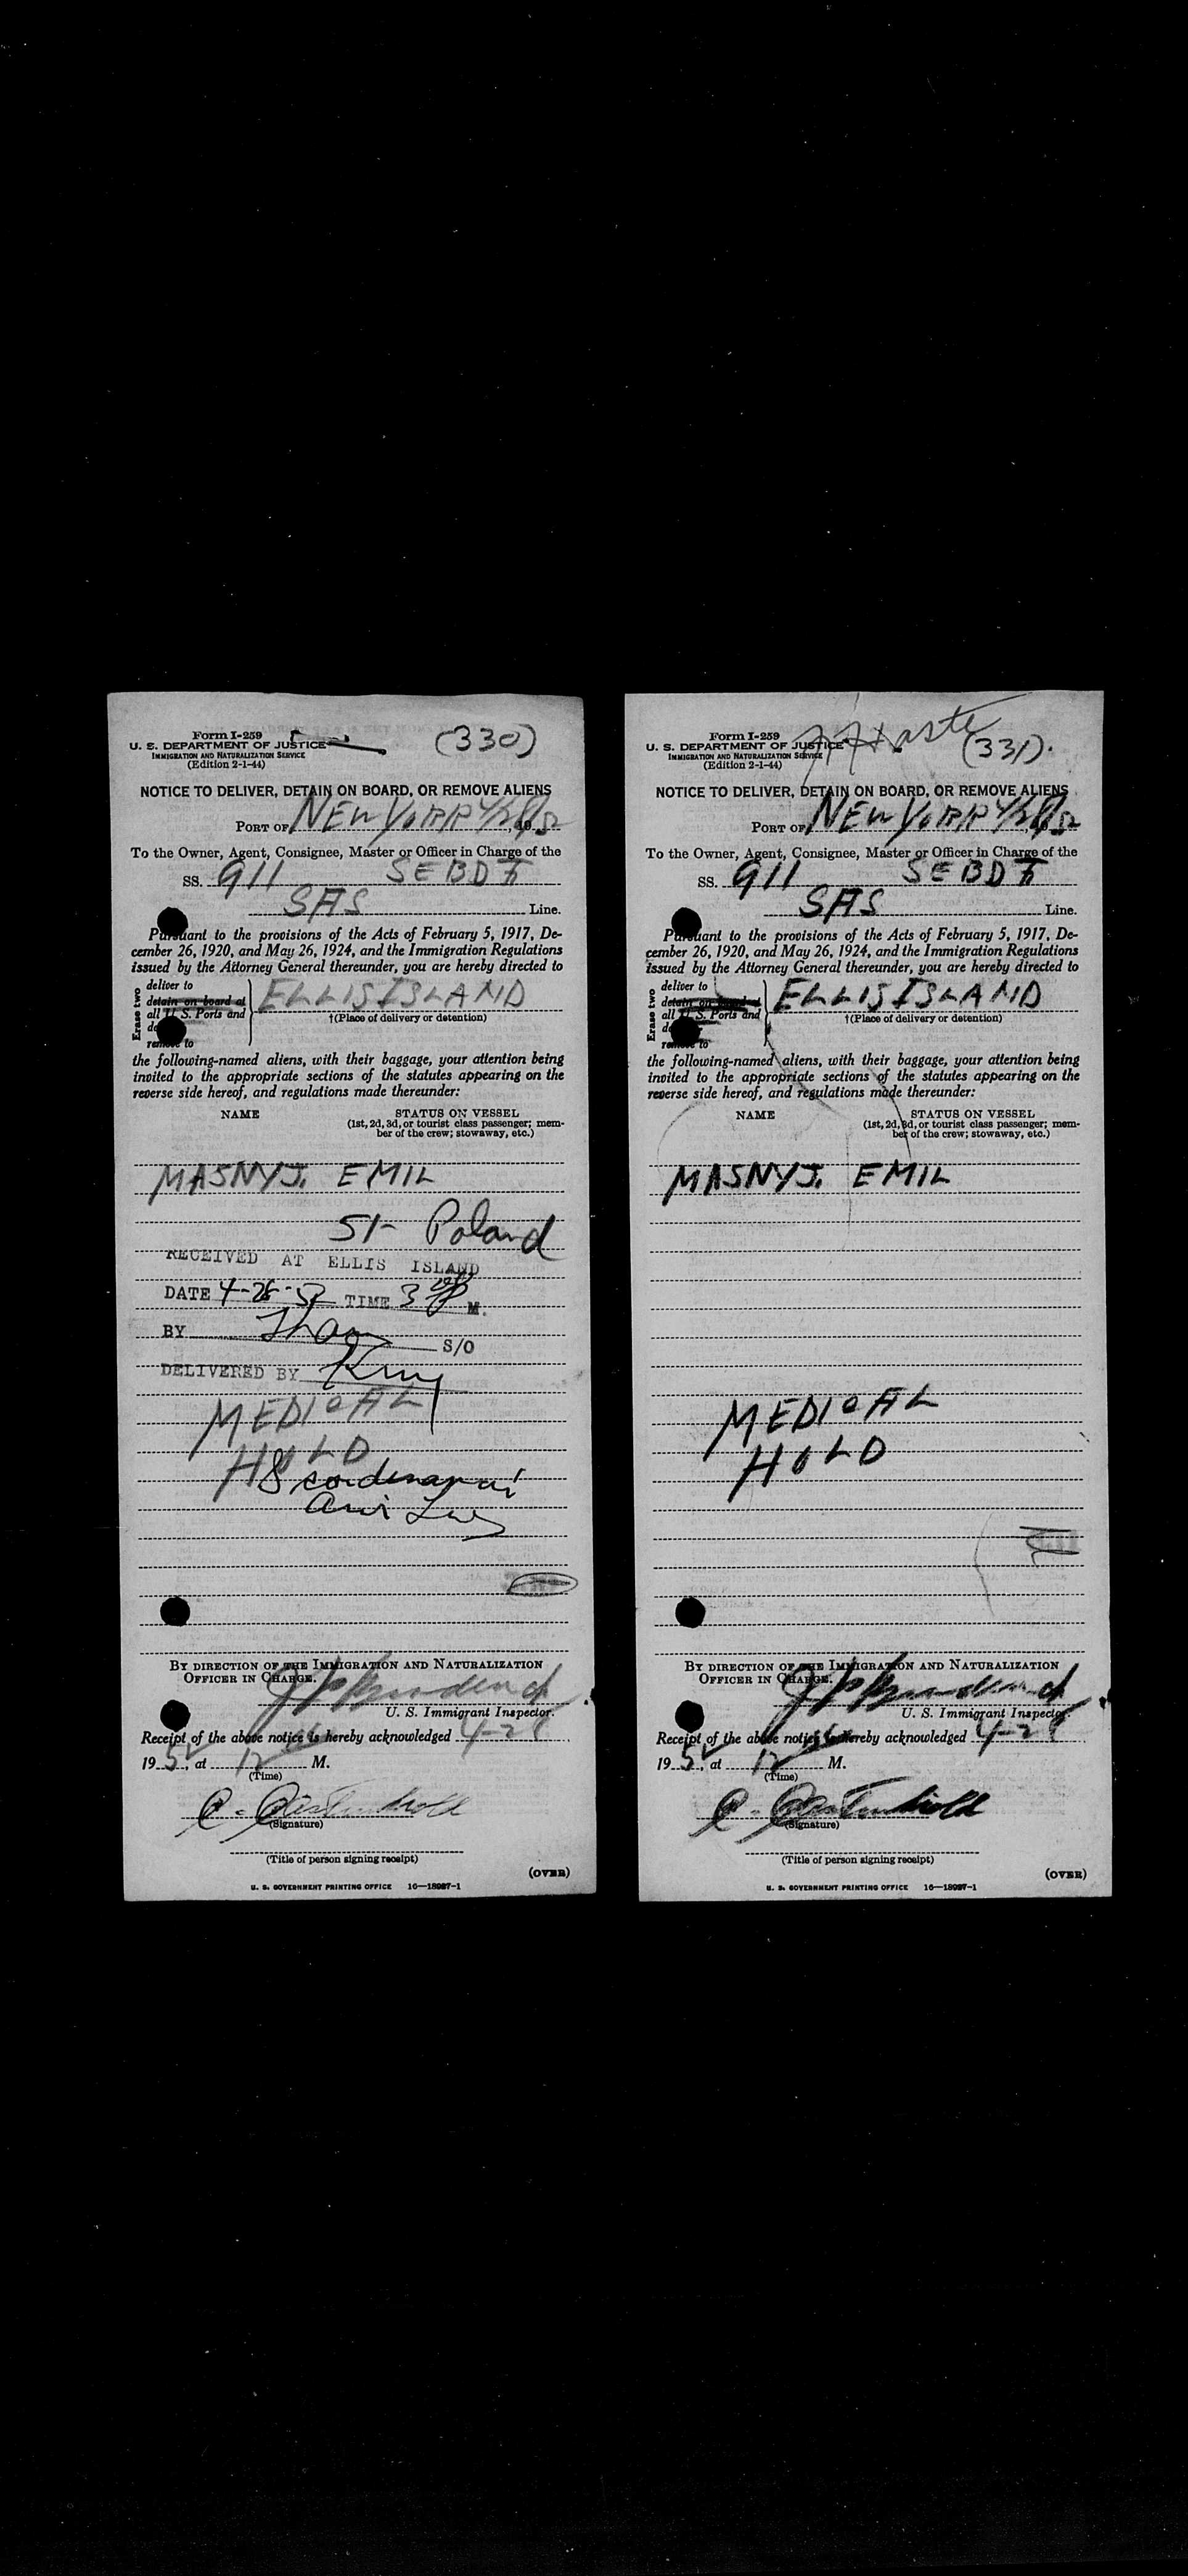 Form I-259
U. S. DEPARTMENT OF JUSTICE
IMMIGRATION AND NATURALIZATION SERVICE
(Edition 2-1-44)
(330)
NOTICE TO DELIVER, DETAIN ON BOARD, OR REMOVE ALIENS
PORT OF NEW YORK 4/28/52
To the Owner, Agent, Consignee, Master or Officer in Charge of the
SS. 911 SEBDF
SAS Line.
Pursuant to the provisions of the Acts of February 5, 1917, De-
cember 26, 1920, and May 26, 1924, and the Immigration Regulations
issued by the Attorney General thereunder, you are hereby directed to
Erase two
deliver to
detain on board at
all U. S. Ports and
remove to
ELLIS ISLAND
†(Place of delivery or detention)
the following-named aliens, with their baggage, your attention being
invited to the appropriate sections of the statutes appearing on the
reverse side hereof, and regulations made thereunder:
NAME STATUS ON VESSEL
(1st, 2d, 3d, or tourist class passenger; mem-
ber of the crew; stowaway, etc.)
MASNYJ. EMIL
51- Poland
RECEIVED AT ELLIS ISLAND
DATE 4-28-52 TIME 3 M.
BY S/O
DELIVERED BY
MEDICAL
HOLD
BY DIRECTION OF THE IMMIGRATION AND NATURALIZATION
OFFICER IN CHARGE.
U. S. Immigrant Inspector.
Receipt of the above notice is hereby acknowledged 4-28
1952, at 12 M.
(Time)
(Signature)
(Title of person signing receipt)
(OVER)
U. S. GOVERNMENT PRINTING OFFICE 16—18987-1
Form I-259
U. S. DEPARTMENT OF JUSTICE
IMMIGRATION AND NATURALIZATION SERVICE
(Edition 2-1-44)
(331).
NOTICE TO DELIVER, DETAIN ON BOARD, OR REMOVE ALIENS
PORT OF NEW YORK 4/28/52
To the Owner, Agent, Consignee, Master or Officer in Charge of the
SS. 911 SEBDF
SAS Line.
Pursuant to the provisions of the Acts of February 5, 1917, De-
cember 26, 1920, and May 26, 1924, and the Immigration Regulations
issued by the Attorney General thereunder, you are hereby directed to
Erase two
deliver to
detain on board at
all U. S. Ports and
remove to
ELLIS ISLAND
†(Place of delivery or detention)
the following-named aliens, with their baggage, your attention being
invited to the appropriate sections of the statutes appearing on the
reverse side hereof, and regulations made thereunder:
NAME STATUS ON VESSEL
(1st, 2d, 3d, or tourist class passenger; mem-
ber of the crew; stowaway, etc.)
MASNYJ. EMIL
MEDICAL
HOLD
BY DIRECTION OF THE IMMIGRATION AND NATURALIZATION
OFFICER IN CHARGE.
U. S. Immigrant Inspector
Receipt of the above notice is hereby acknowledged 4-28
1952, at 12 M.
(Time)
(Signature)
(Title of person signing receipt)
(OVER)
U. S. GOVERNMENT PRINTING OFFICE 16—18987-1